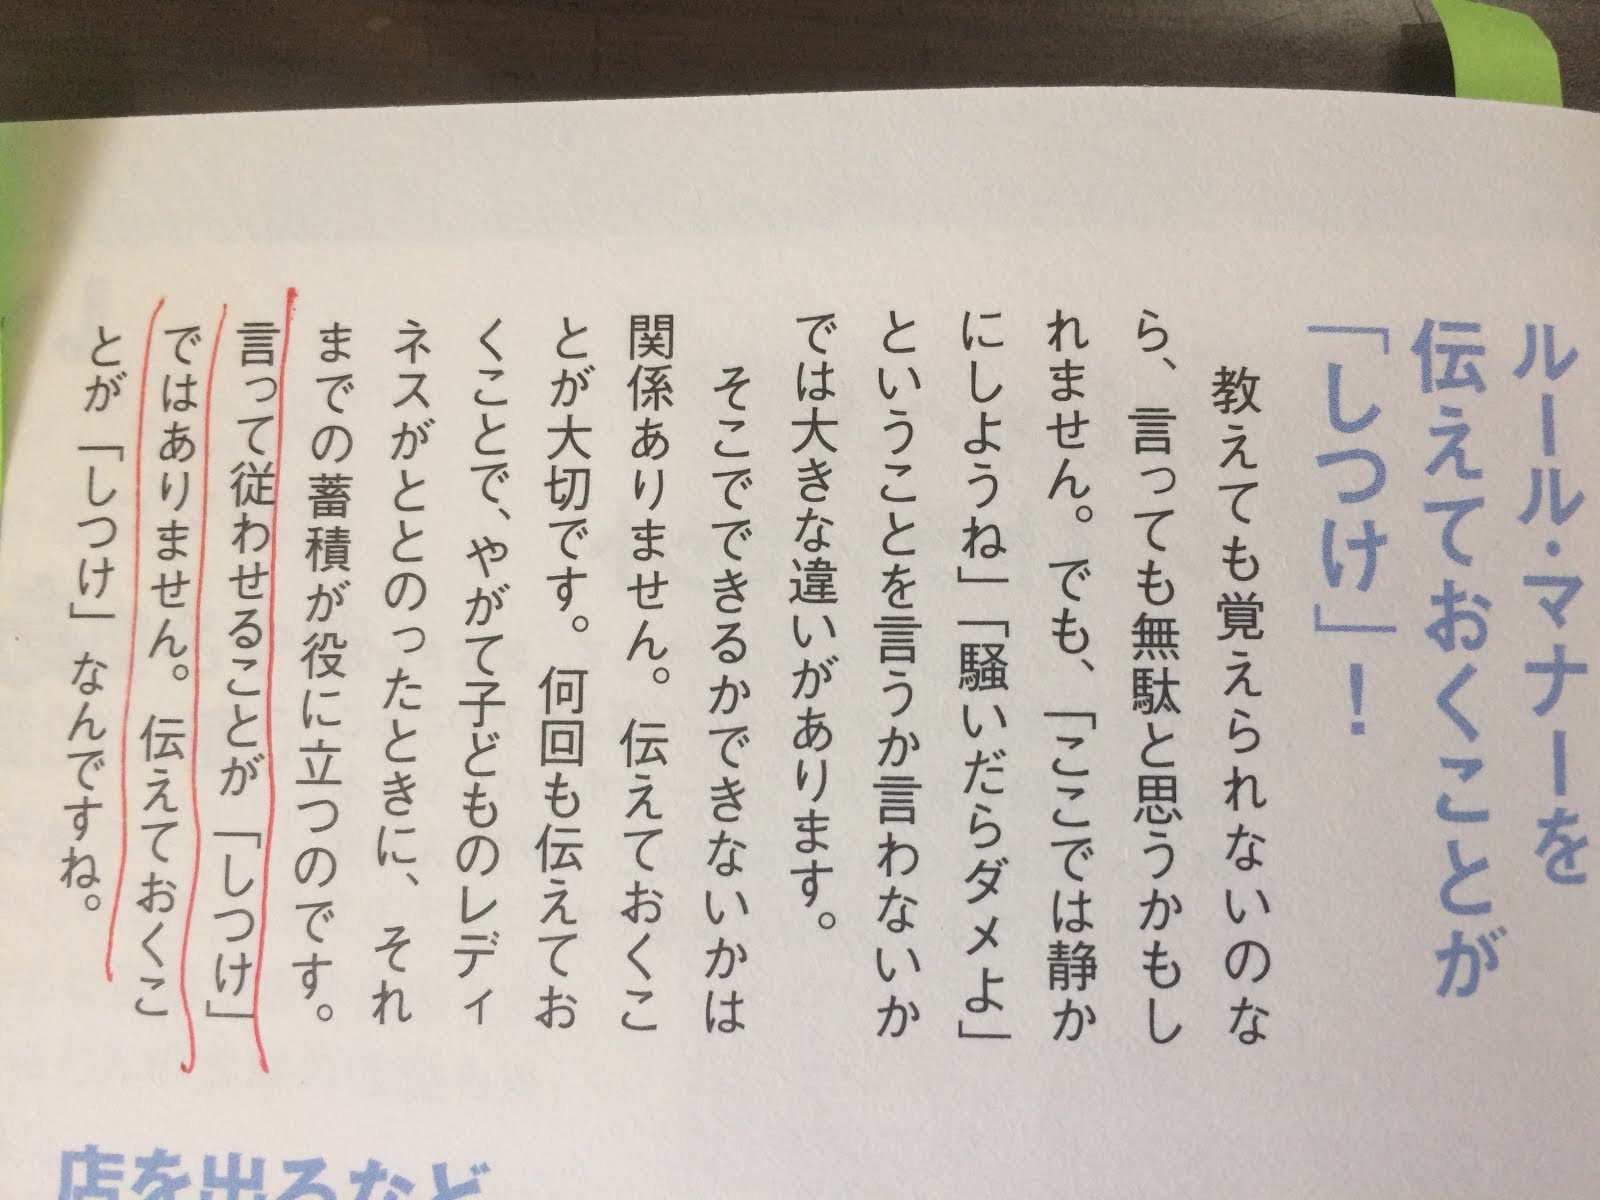 ルール・マナーを
伝えておくことが
「しつけ」!
教えても覚えられないのな
ら、言っても無駄と思うかもし
れません。でも、「ここでは静か
にしようね」「騒いだらダメよ」
ということを言うか言わないか
では大きな違いがあります。
そこでできるかできないかは
関係ありません。伝えておくこ
とが大切です。何回も伝えてお
くことで、やがて子どものレディ
ネスがととのったときに、それ
までの蓄積が役に立つのです。
言って従わせることが「しつけ」
ではありません。伝えておくこ
とが「しつけ」なんですね。
店を出るなど